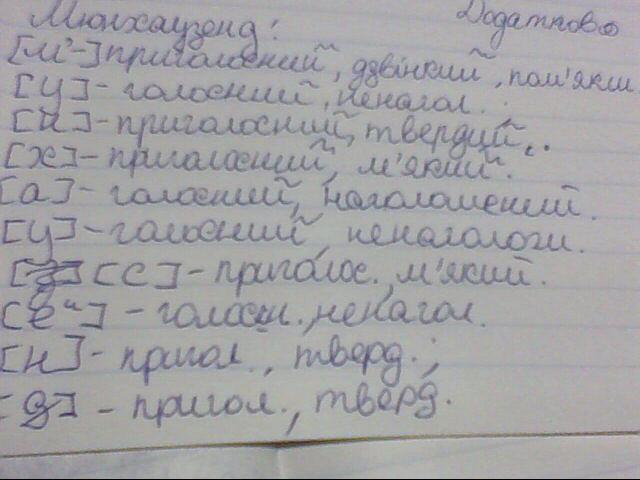 Мюнхаузенд! Додатково
[м'-] приголосний, дзвінкий, пом'якш
[у] - голосний, ненагол.
[н] - приголосний, твердий,.
[х] - приголосний, м'який.
[а] - голосний, наголошений.
[у] - голосний, ненаголош.
[с] - приголос., м'який.
[еи] - голосн., ненагол.
[н] - пригол., тверд.;
[д] - пригол., тверд.